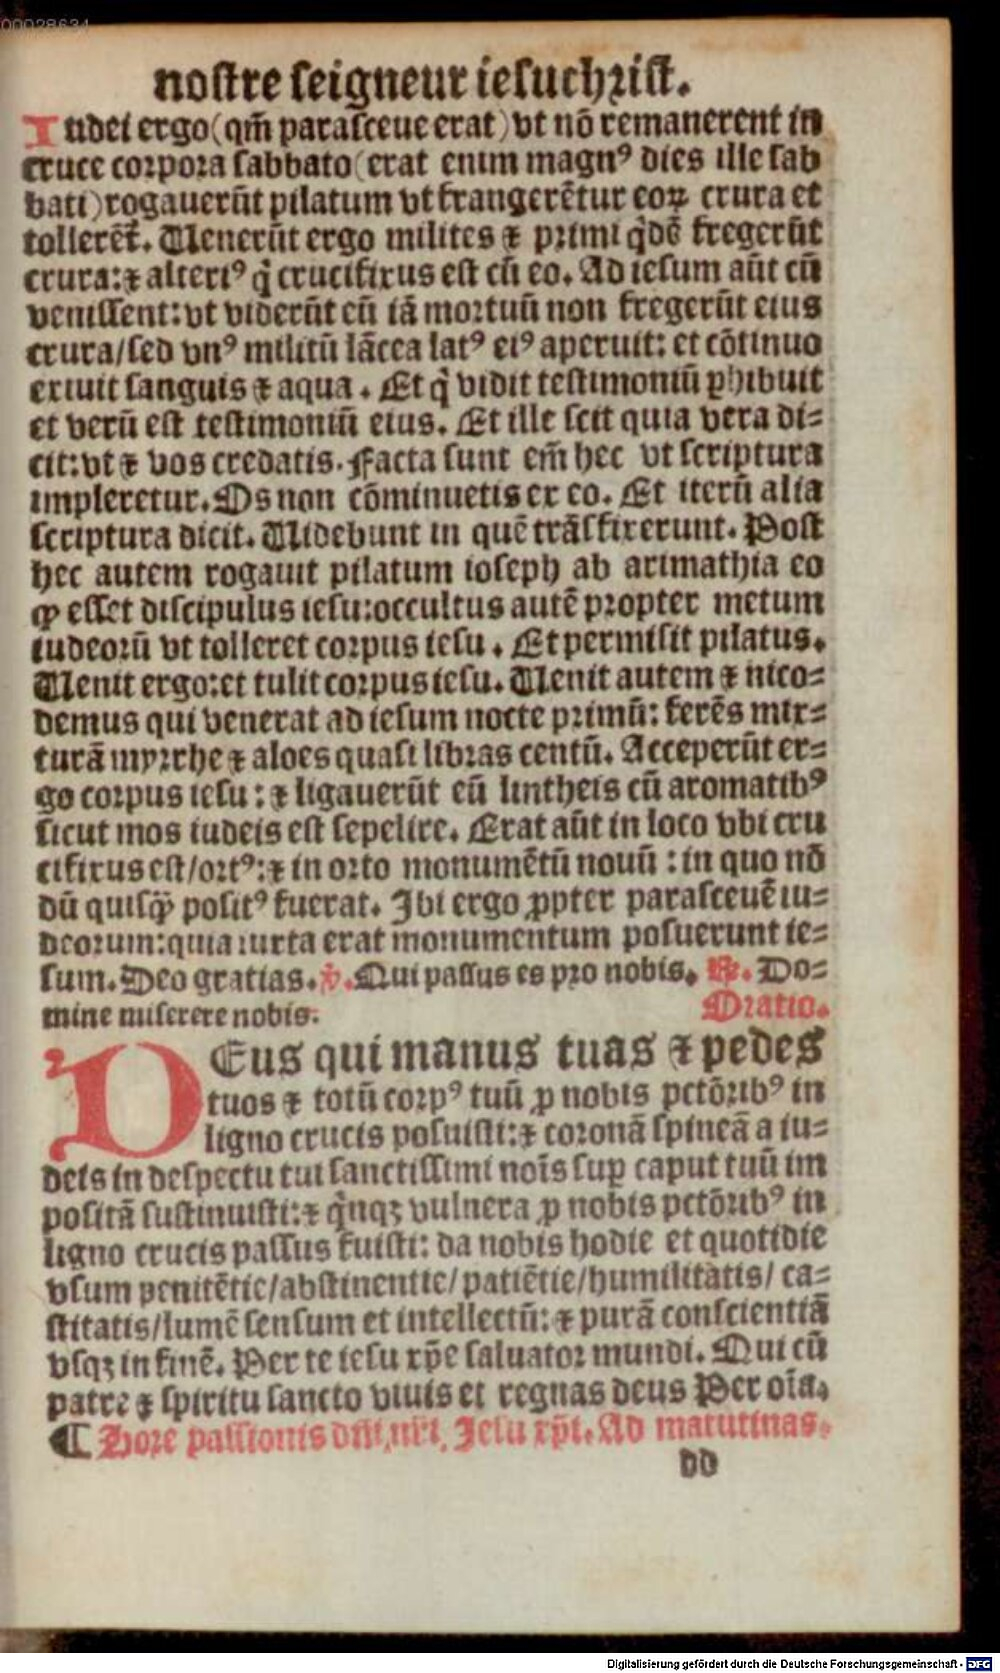 00028634
nostre seigneur iesuchrist.
Iudei ergo (qm̄ parasceue erat) vt nō remanerent in
cruce corpora sabbato (erat enim magnꝰ dies ille sab
bati) rogauerūt pilatum vt frangerētur eoꝝ crura et
tollerēt̄. Uenerūt ergo milites ⁊ primi q̇dē fregerūt
crura: ⁊ alteriꝰ q̇ crucifixus est cū eo. Ad iesum aūt cū
venissent: vt viderūt eū iā mortuū non fregerūt eius
crura/sed vnꝰ militū lācea latꝰ eiꝰ aperuit: et cōtinuo
exiuit sanguis ⁊ aqua. Et q̇ vidit testimoniū ꝑhibuit
et verū est testimoniū eius. Et ille scit quia vera di-
cit: vt ⁊ vos credatis. Facta sunt em̄ hec vt scriptura
impleretur. Os non cōminuetis ex eo. Et iterū alia
scriptura dicit. Uidebunt in quē trāsfixerunt. Post
hec autem rogauit pilatum ioseph ab arimathia eo
ꝙ esset discipulus iesu: occultus autē propter metum
iudeorū vt tolleret corpus iesu. Et permisit pilatus.
Uenit ergo: et tulit corpus iesu. Uenit autem ⁊ nico-
demus qui venerat ad iesum nocte primū: ferēs mix-
turā myrrhe ⁊ aloes quasi libras centū. Acceperūt er-
go corpus iesu: ⁊ ligauerūt eū lintheis cū aromatibꝰ
sicut mos iudeis est sepelire. Erat aūt in loco vbi cru
cifixus est/ortꝰ: ⁊ in orto monumētū nouū: in quo nō
dū quisꝙ̄ positꝰ fuerat. Ibi ergo ꝓpter parasceuē iu-
deorum: quia iuxta erat monumentum posuerunt ie-
sum. Deo gratias. ℣. Qui passus es pro nobis. ℟. Do-
mine miserere nobis. Oratio.
DEus qui manus tuas ⁊ pedes
tuos ⁊ totū corpꝰ tuū ꝓ nobis pctōribꝰ in
ligno crucis posuisti: ⁊ coronā spineā a iu-
deis in despectu tui sanctissimi noīs suꝑ caput tuū im
positā sustinuisti: ⁊ q̇nqꝫ vulnera ꝓ nobis pctōribꝰ in
ligno crucis passus fuisti: da nobis hodie et quotidie
vsum penitētie/abstinentie/patiētie/humilitatis/ca-
stitatis/lumē sensum et intellectū: ⁊ purā conscientiā
vsqꝫ in finē. Per te iesu xp̄e saluator mundi. Qui cū
patre ⁊ spiritu sancto viuis et regnas deus Per oīa.
¶ Hore passionis dn̄i nr̄i Iesu xp̄i. Ad matutinas.
dd
Digitalisierung gefördert durch die Deutsche Forschungsgemeinschaft - DFG